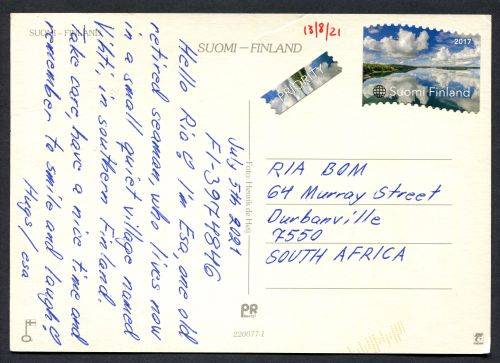 SUOMI – FINLAND
SUOMI – FINLAND
13/8/21
PRIORITY
2017
Suomi Finland
July 5th 2021
FI-3974846
Hello Ria! I'm Esa, one old
retired seaman, who lives now
in a small quiet village named
Vihti, in southern Finland.
Take care, have a nice time and
remember to smile and laugh!
Hugs / esa
Foto: Henrik de
RIA BOM
64 Murray Street
Durbanville
7550
SOUTH AFRICA
PR
220077-1